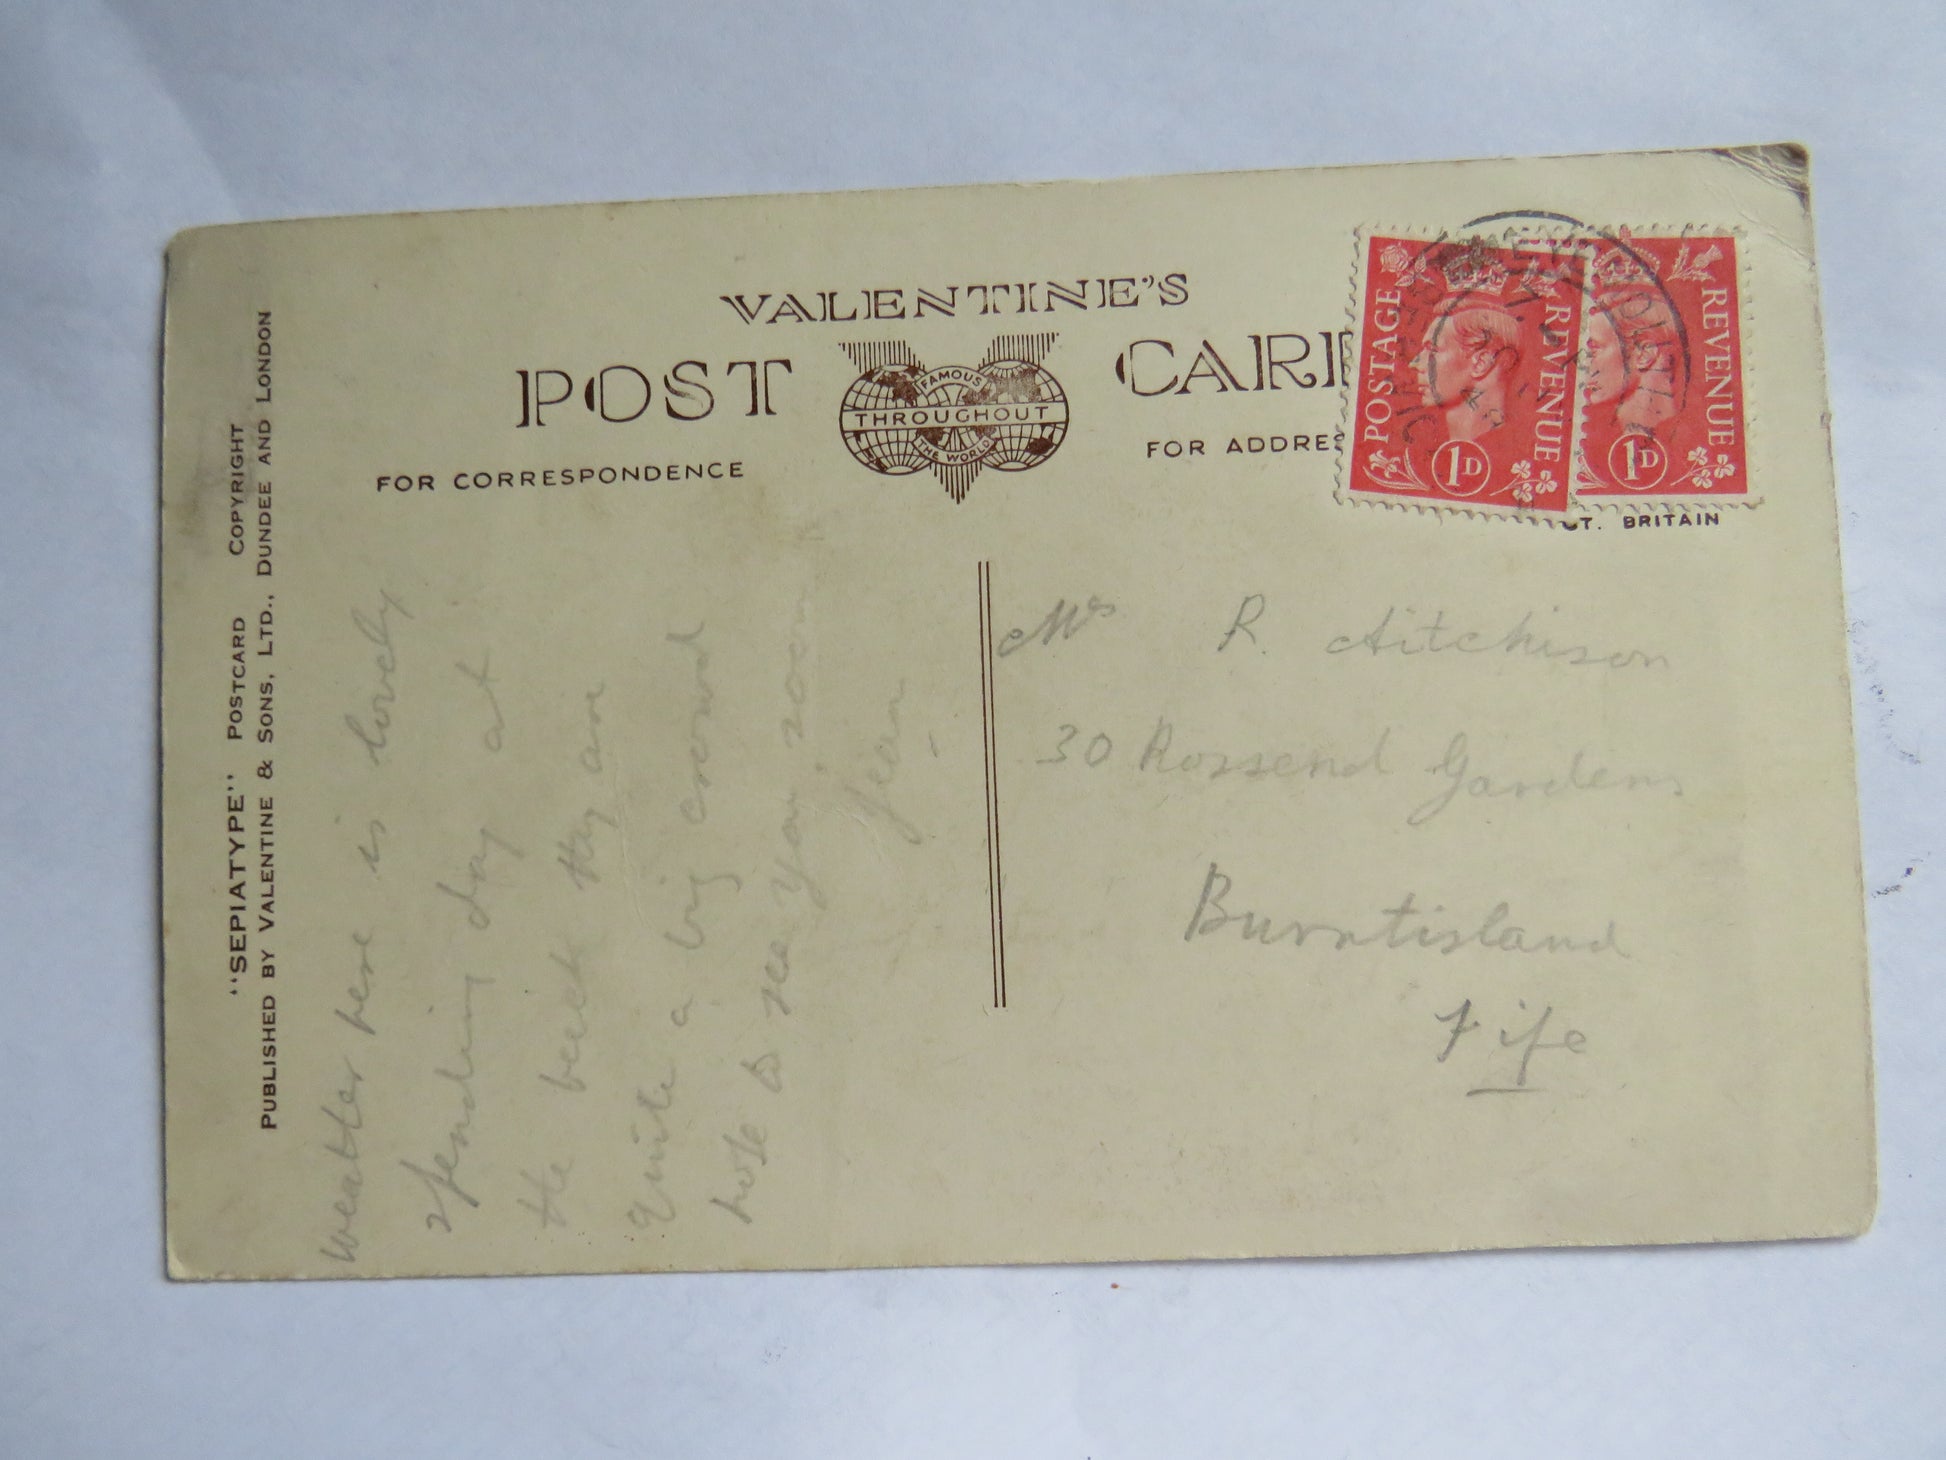 "SEPIATYPE" POSTCARD COPYRIGHT
PUBLISHED BY VALENTINE & SONS, LTD., DUNDEE AND LONDON
VALENTINE'S
POST CAR
FAMOUS
THROUGHOUT
THE WORLD
FOR CORRESPONDENCE
FOR ADDRES
POSTAGE REVENUE
1D
REVENUE
1D
GT. BRITAIN
Weather here is lovely
spending day at
the beech thy are
Quite a big crowd
hope to see you soon
Jean
Mrs R. Aitchison
30 Rossend Gardens
Burntisland
Fife